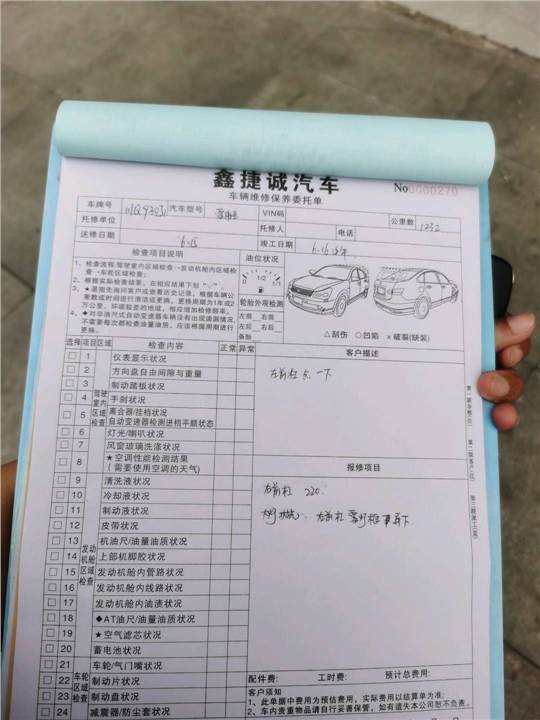 鑫捷诚汽车
车辆维修保养委托单
No0000270
车牌号 汽车型号 VIN码 公里数 1232
托修单位 托修人 电话
送修日期 6-15 竣工日期 6-16
检查项目说明
油位状况
1、检查流程:驾驶室内区域检查→发动机舱内区域检查→车轮区域检查;
2、根据实际检查结果,在相应结果下划“√”。
3、★是指先询问客户或查看历史记录,根据车辆公里数或时间进行清洁或更换。更换周期为1年或2万公里,环境较差的地域,相应增加检修频率。
4、◆对非油尺式自动变速器车辆没有出现渗漏情况,不需要每次都检查油量油质。应该根据周期进行更换。
0 1/2 1/1
轮胎外观检测
左前 右前
左后 右后
△刮伤 ○凹陷 ×破裂(缺装)
选择 项目区域 检查内容 正常 异常
驾驶室内区域检查
1 仪表显示状况
2 方向盘自由间隙与重量
3 制动踏板状况
4 手刹状况
5 离合器/挂档状况
自动变速器检测进档平顺状态
6 灯光/喇叭状况
7 风窗玻璃洗涤状况
8 ★空调性能检测结果
(需要使用空调的天气)
发动机舱区域检查
9 清洗液状况
10 冷却液状况
11 制动液状况
12 皮带状况
13 机油尺/油量油质状况
14 上部机脚胶状况
15 发动机舱内管路状况
16 发动机舱内线路状况
17 发动机舱内油渍状况
18 ◆AT油尺/油量油质状况
19 ★空气滤芯状况
20 蓄电池状况
车轮区域检查
21 车轮/气门嘴状况
22 制动片状况
23 制动盘状况
24 减震器/防尘套状况
客户描述
左前杠 一下
报修项目
左前杠 220
配件费: 工时费: 预计总费用:
客户须知
1、此单据中费用为预估费用,实际费用以结算单为准;
2、车内贵重物品请自行妥善保管,如有遗失本公司恕不负责。